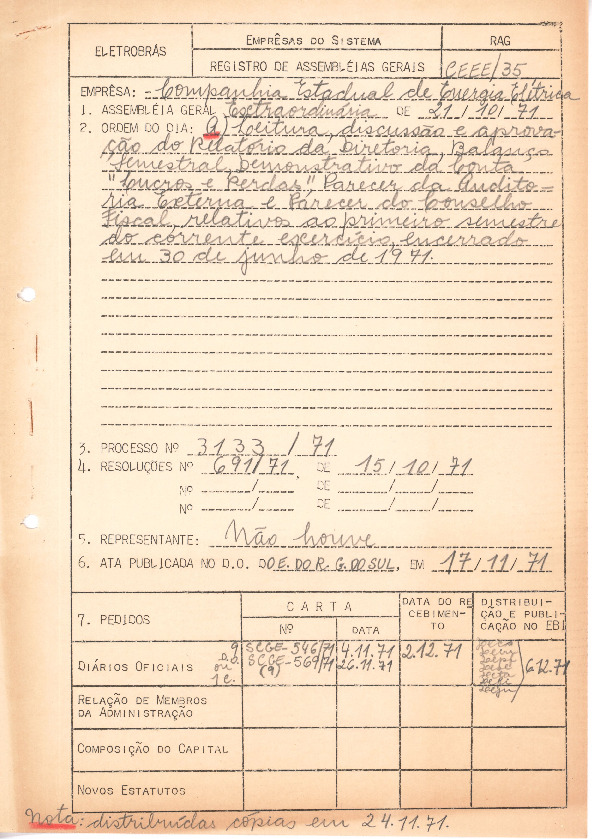 ELETROBRÁS
EMPRÊSAS DO SISTEMA
RAG
REGISTRO DE ASSEMBLÉIAS GERAIS
CEEE/35
EMPRÊSA: Companhia Estadual de Energia Elétrica
1. ASSEMBLÉIA GERAL Extraordinária DE 31/10/71
2. ORDEM DO DIA: a) Leitura, discussão e aprova-
ção do Relatório da Diretoria, Balanço
Semestral, Demonstrativo da Conta
"Lucros e Perdas", Parecer da Audito-
ria Externa e Parecer do Conselho
Fiscal, relativos ao primeiro semestre
do corrente exercício, encerrado
em 30 de junho de 1971.
3. PROCESSO Nº 3133/71
4. RESOLUÇÕES Nº 691/71, DE 15/10/71
Nº / DE / /
Nº / DE / /
5. REPRESENTANTE: Não houve
6. ATA PUBLICADA NO D.O. DO E. DO R. G. DO SUL, EM 17/11/71
7. PEDIDOS
CARTA
Nº
DATA
DATA DO RE
CEBIMEN-
TO
DISTRIBUI-
ÇÃO E PUBLI-
CAÇÃO NO EBI
DIÁRIOS OFICIAIS
SCGE-546/71 4.11.71 2.12.71
SCGE-569/71 26.11.71
(9)
6.12.71
RELAÇÃO DE MEMBROS
DA ADMINISTRAÇÃO
COMPOSIÇÃO DO CAPITAL
NOVOS ESTATUTOS
Nota: distribuídas cópias em 24.11.71.